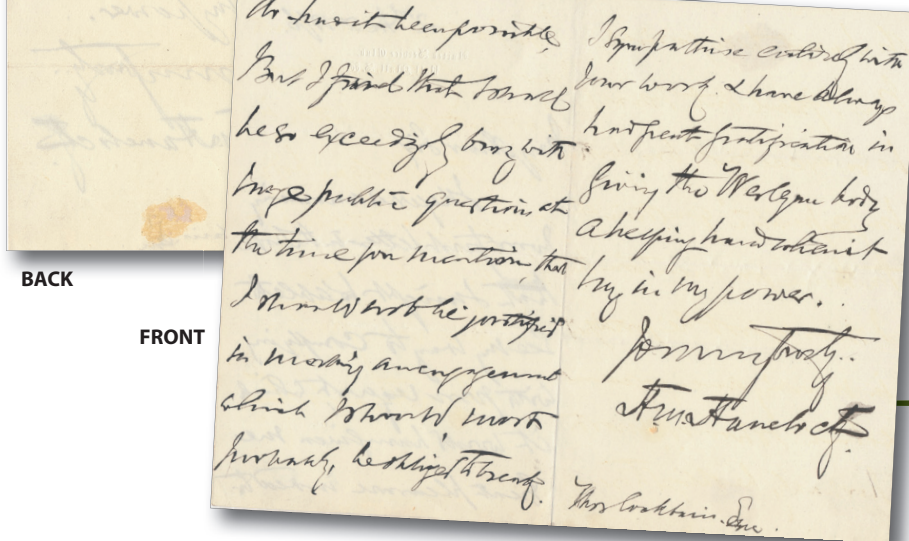 do had it been possible.
But I find that I shall
be so exceedingly busy with
large public questions at
the time you mention that
I should not be justified
in making an engagement
which I should most
probably, be obliged to break.
I sympathise entirely with
your work. I have always
had great gratification in
giving the Wesleyan body
a helping hand when it
lay in my power.
Yours truly.
H.M. Havelock
Thos Cockbain. Esqre.
BACK
FRONT